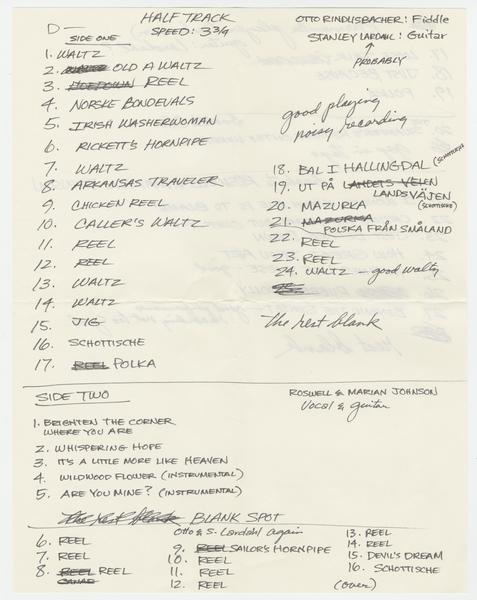 D—
HALF TRACK
SPEED: 3 3/4
OTTO RINDLISBACHER: Fiddle
STANLEY LARDAHL: Guitar
PROBABLY
SIDE ONE
1. WALTZ
2. OLD A WALTZ
3. HOEDOWN REEL
4. NORSKE BONDEVALS
5. IRISH WASHERWOMAN
6. RICKETT'S HORNPIPE
7. WALTZ
8. ARKANSAS TRAVELER
9. CHICKEN REEL
10. CALLER'S WALTZ
11. REEL
12. REEL
13. WALTZ
14. WALTZ
15. JIG
16. SCHOTTISCHE
17. REEL POLKA
good playing
noisy recording
18. BAL I HALLINGDAL (SCHOTTISCHE)
19. UT PÅ LANDETS VEIEN
LANDSVÄJEN
20. MAZURKA (SCHOTTISCHE)
21. MAZURKA
POLSKA FRÅN SMÅLAND
22. REEL
23. REEL
24. WALTZ - good waltz
25.
The rest blank
SIDE TWO
ROSWELL & MARIAN JOHNSON
Vocal & guitar
1. BRIGHTEN THE CORNER
WHERE YOU ARE
2. WHISPERING HOPE
3. IT'S A LITTLE MORE LIKE HEAVEN
4. WILDWOOD FLOWER (INSTRUMENTAL)
5. ARE YOU MINE? (INSTRUMENTAL)
The rest blank BLANK SPOT
Otto & S. Lardahl again
6. REEL
7. REEL
8. REEL REEL
9. REEL SAILOR'S HORNPIPE
10. REEL
11. REEL
12. REEL
13. REEL
14. REEL
15. DEVIL'S DREAM
16. SCHOTTISCHE
(over)